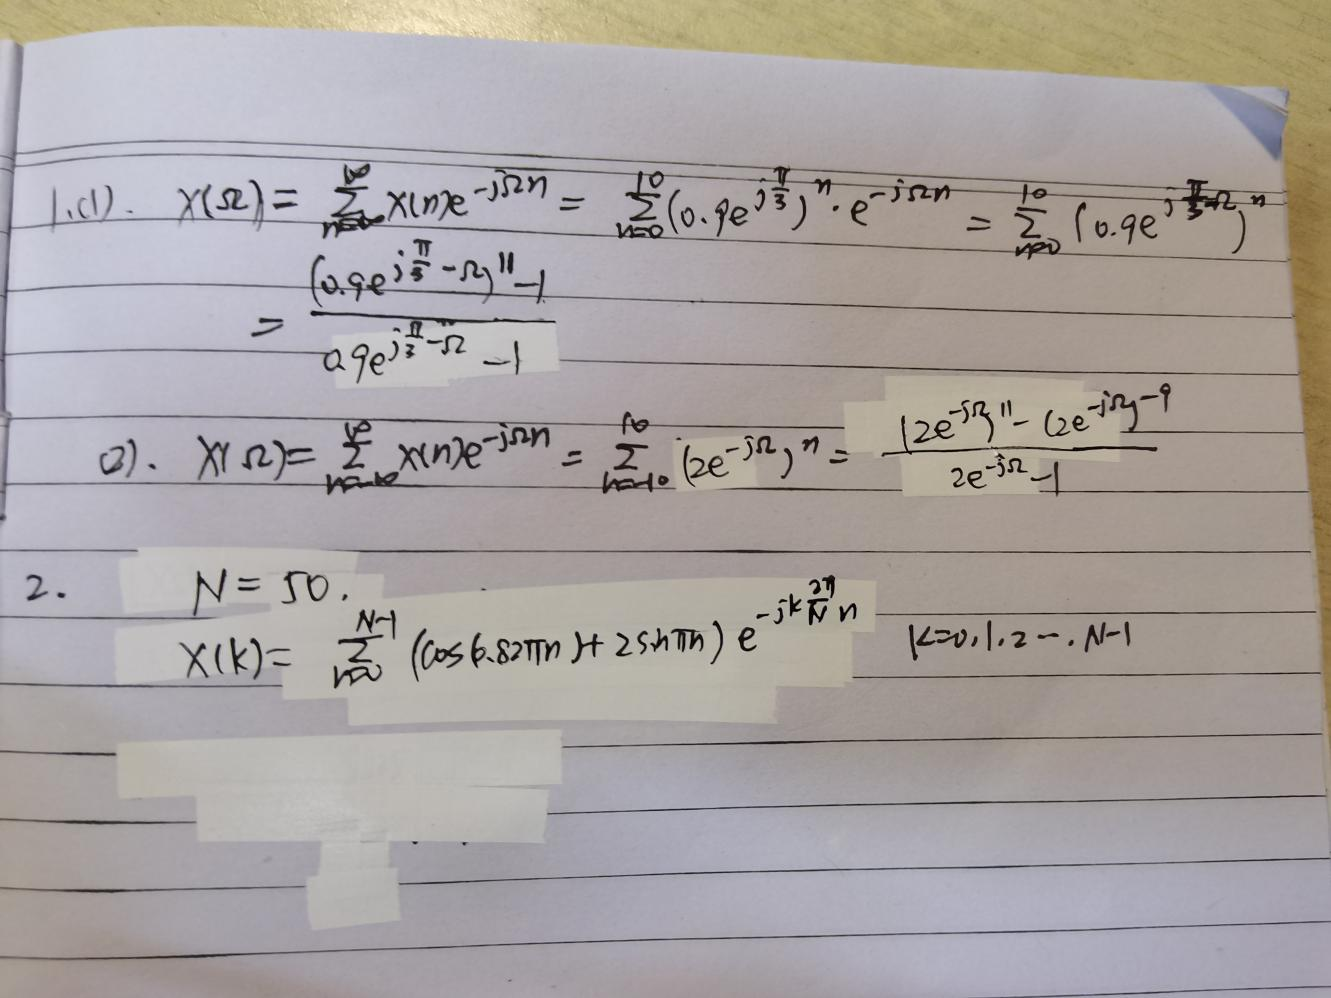 1.(1). X(Ω) = ∑_{n=-∞}^{∞} x(n)e^{-jΩn} = ∑_{n=0}^{10} (0.9e^{j\frac{π}{3}})^n · e^{-jΩn} = ∑_{n=0}^{10} (0.9e^{j\frac{π}{3}-Ω})^n
= \frac{(0.9e^{j\frac{π}{3}-Ω})^{11} -1}{0.9e^{j\frac{π}{3}-Ω} -1}
(2). X(Ω) = ∑_{n=-∞}^{∞} x(n)e^{-jΩn} = ∑_{n=-10}^{10} (2e^{-jΩ})^n = \frac{(2e^{-jΩ})^{11} - (2e^{-jΩ})^{-9}}{2e^{-jΩ} -1}
2. N = 50.
X(k) = ∑_{n=0}^{N-1} (cos(0.82πn) + 2sinπn) e^{-jk\frac{2π}{N}n} k=0,1,2 -·. N-1